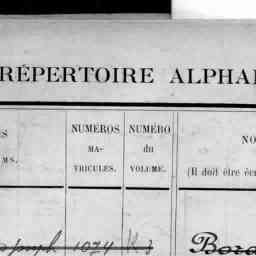 RÉPERTOIRE ALPHA
S NUMÉROS NUMÉRO NO
MA- du
MS. TRICULES. VOLUME. (Il doit être éc
1074 Bora